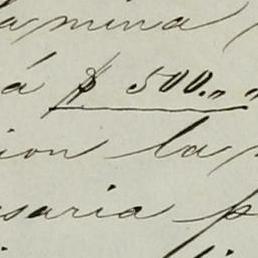 lamina
á $ 500.,,
ion la
saria p